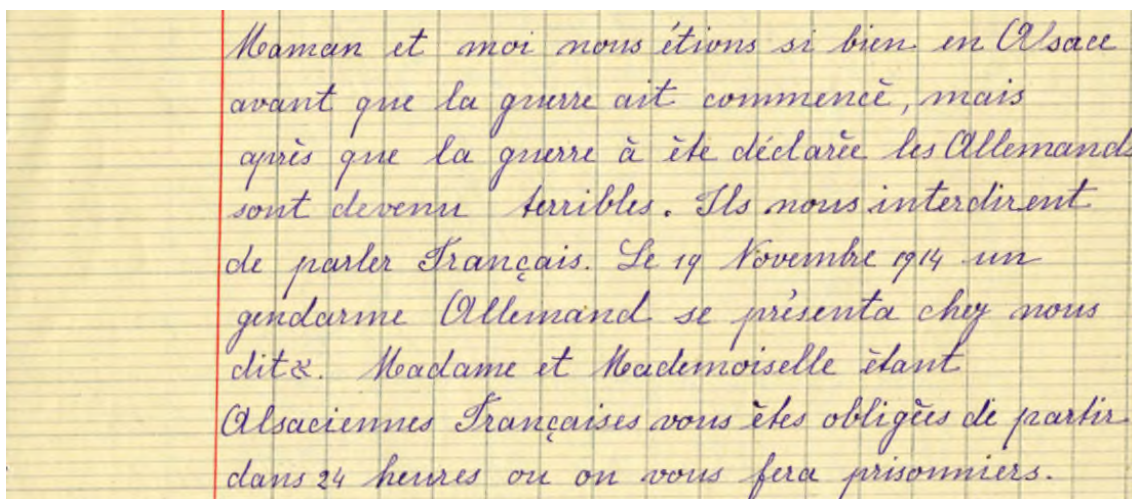 Maman et moi nous étions si bien en Alsace
avant que la guerre ait commencé, mais
après que la guerre à été déclarée les Allemands
sont devenu terribles. Ils nous interdirent
de parler Français. Le 19 Novembre 1914 un
gendarme Allemand se présenta chez nous
dit. Madame et Mademoiselle étant
Alsaciennes Françaises vous êtes obligées de partir
dans 24 heures ou on vous fera prisonniers.